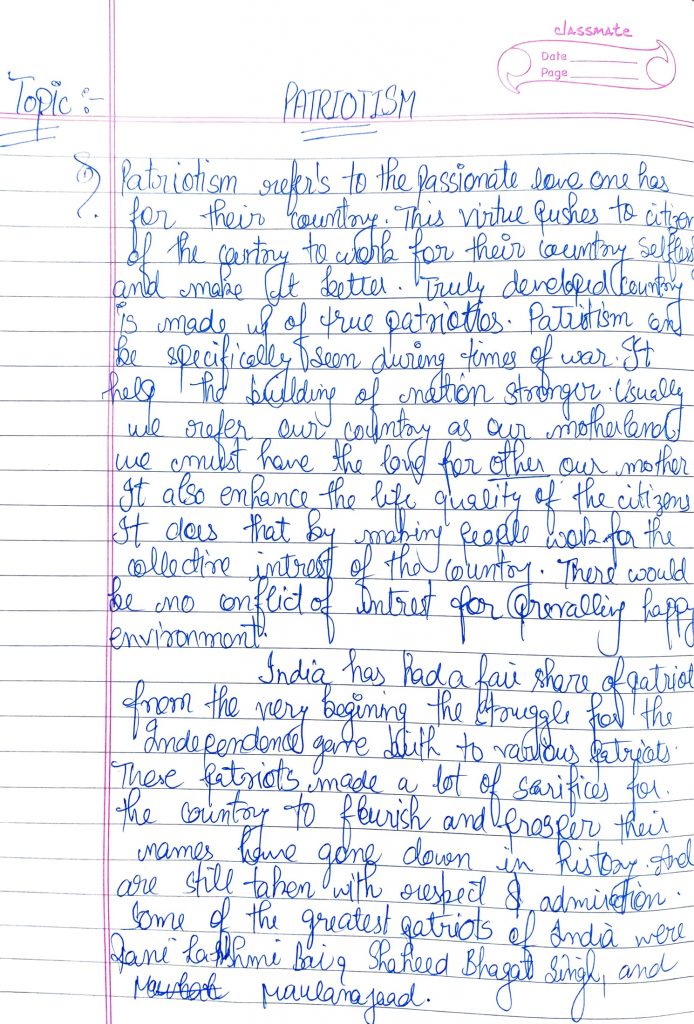 classmate
Date
Page
Topic :-
PATRIOTISM
Patriotism refer's to the passionate love one has
for their country. This virtue pushes to citizen
of the country to work for their country selfless
and make it better. Truly developed country
is made up of true patriottes. Patriotism can
be specifically seen during times of war. It
help the building of nation stronger. Usually
we refer our country as our motherland
we must have the love for other our mother
It also enhance the life quality of the citizens
It does that by making people work for the
collective intrest of the country. There would
be no conflict of intrest for prevalling happy
environment.
India has had a fair share of patriot
from the very begining the struggle for the
Independence gave birth to various patriots.
These patriots made a lot of sarifices for
the country to flourish and prosper their
names have gone down in history. And
are still taken with respect & admiration.
Some of the greatest patriots of India were
Rani Lakshmi Bai, Shaheed Bhagat Singh, and
Maulanajaad.